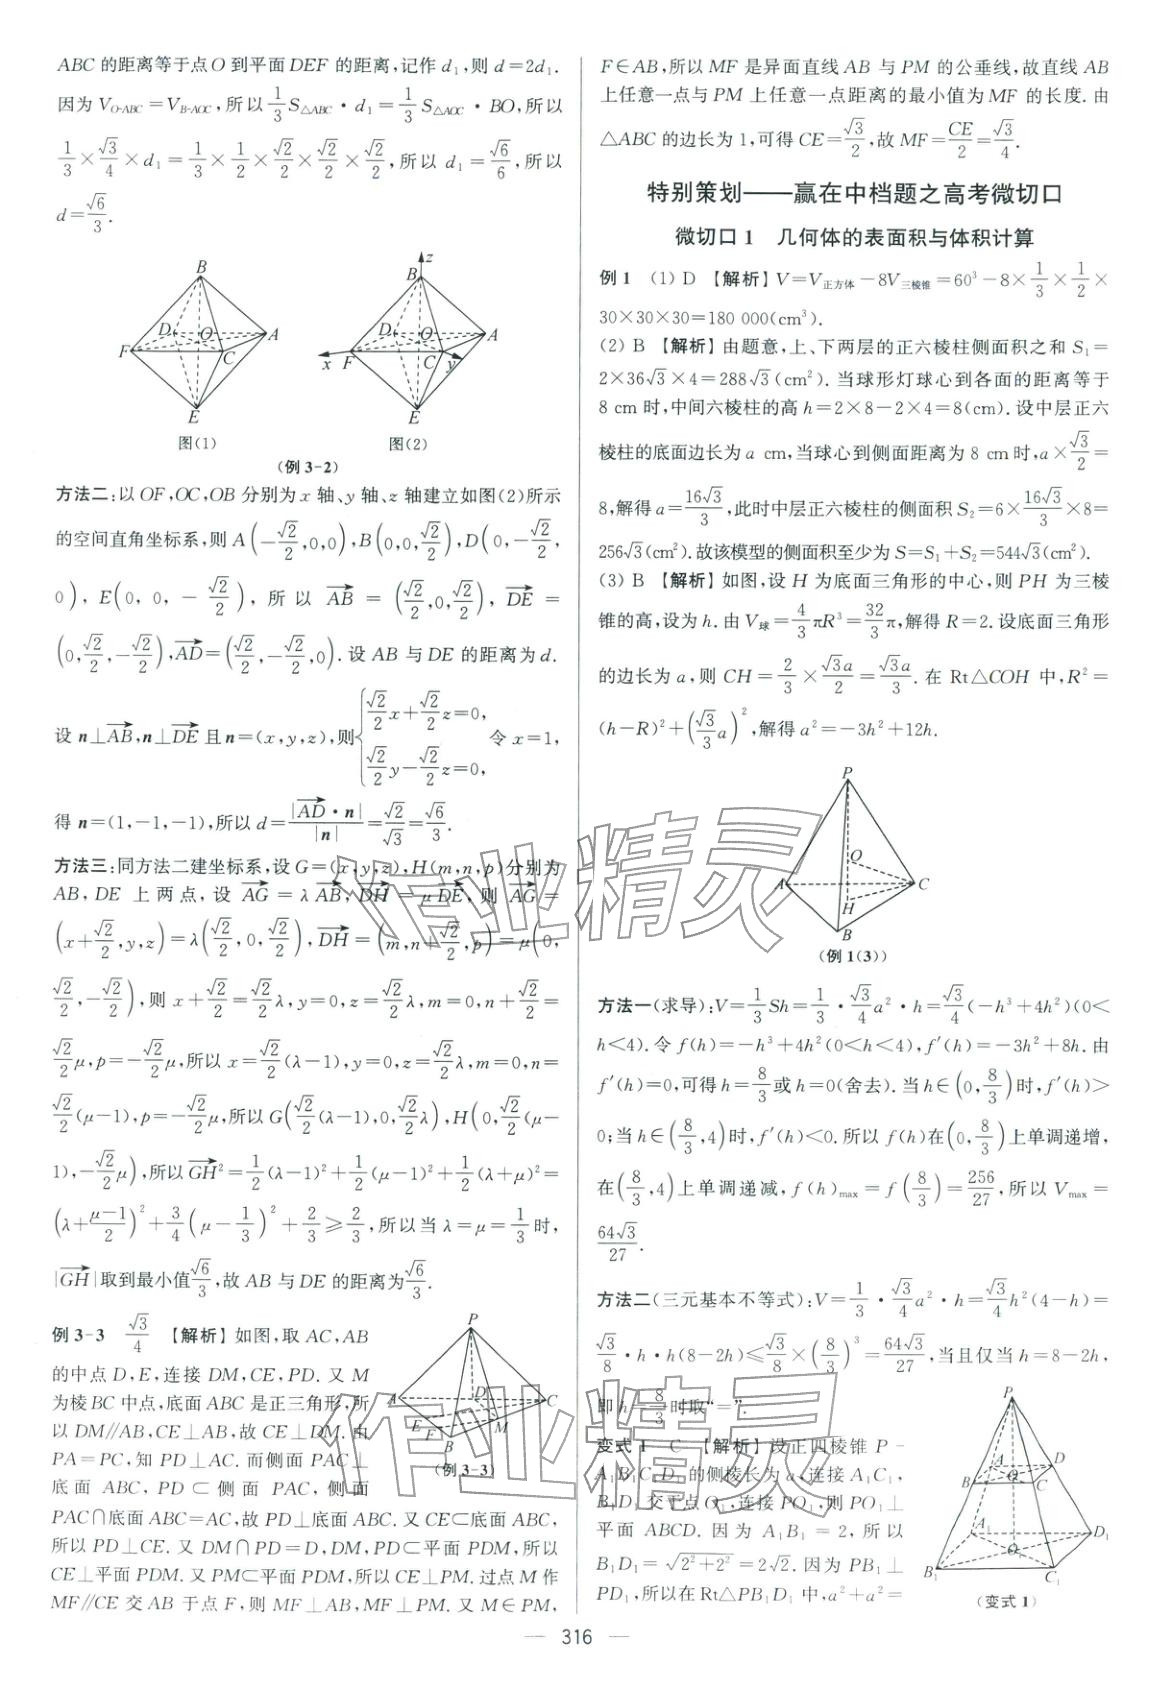 ABC 的距离等于点 O 到平面 DEF 的距离,记作 d₁,则 d=2d₁.
因为 V_{O-ABC}=V_{B-AOC},所以 1/3 S△ABC・d₁=1/3 S△AOC・BO,所以
1/3×√3/4×d₁=1/3×1/2×√2/2×√2/2×√2/2,所以 d₁=√6/6,所以
d=√6/3.
B D O A F C E
图(1)
z B D O A x F C y E
图(2)
(例 3-2)
方法二:以 OF,OC,OB 分别为 x 轴、y 轴、z 轴建立如图(2)所示
的空间直角坐标系,则 A(-√2/2,0,0),B(0,0,√2/2),D(0,-√2/2,
0),E(0,0,-√2/2),所以 →AB=(√2/2,0,√2/2),→DE=
(0,√2/2,-√2/2),→AD=(√2/2,-√2/2,0).设 AB 与 DE 的距离为 d.
设 n⊥→AB,n⊥→DE 且 n=(x,y,z),则{√2/2x+√2/2z=0, √2/2y-√2/2z=0, 令 x=1,
得 n=(1,-1,-1),所以 d=|→AD・n|/|n|=√2/√3=√6/3.
方法三:同方法二建坐标系,设 G=(x,y,z),H(m,n,p)分别为
AB,DE 上两点,设 →AG=λ→AB,→DH=μ→DE,则 →AG=
(x+√2/2,y,z)=λ(√2/2,0,√2/2),→DH=(m,n+√2/2,p)=μ(0,
√2/2,-√2/2),则 x+√2/2=√2/2λ,y=0,z=√2/2λ,m=0,n+√2/2=
√2/2μ,p=-√2/2μ,所以 x=√2/2(λ-1),y=0,z=√2/2λ,m=0,n=
√2/2(μ-1),p=-√2/2μ,所以 G(√2/2(λ-1),0,√2/2λ),H(0,√2/2(μ-
1),-√2/2μ),所以 →GH²=1/2(λ-1)²+1/2(μ-1)²+1/2(λ+μ)²=
(λ+(μ-1)/2)²+3/4(μ-1/3)²+2/3≥2/3,所以当 λ=μ=1/3 时,
|→GH|取到最小值√6/3,故 AB 与 DE 的距离为√6/3.
例 3-3 √3/4 【解析】如图,取 AC,AB
的中点 D,E,连接 DM,CE,PD.又 M
为棱 BC 中点,底面 ABC 是正三角形,所
以 DM∥AB,CE⊥AB,故 CE⊥DM.由
PA=PC,知 PD⊥AC.而侧面 PAC⊥
底面 ABC,PD⊂侧面 PAC,侧面
P A D C E F B M
(例 3-3)
PAC∩底面 ABC=AC,故 PD⊥底面 ABC.又 CE⊂底面 ABC,
所以 PD⊥CE.又 DM∩PD=D,DM,PD⊂平面 PDM,所以
CE⊥平面 PDM.又 PM⊂平面 PDM,所以 CE⊥PM.过点 M 作
MF∥CE 交 AB 于点 F,则 MF⊥AB,MF⊥PM.又 M∈PM,
F∈AB,所以 MF 是异面直线 AB 与 PM 的公垂线,故直线 AB
上任意一点与 PM 上任意一点距离的最小值为 MF 的长度.由
△ABC 的边长为 1,可得 CE=√3/2,故 MF=CE/2=√3/4.
特别策划——赢在中档题之高考微切口
微切口 1 几何体的表面积与体积计算
例 1 (1) D 【解析】V=V正方体-8V三棱锥=60³-8×1/3×1/2×
30×30×30=180 000(cm³).
(2) B 【解析】由题意,上、下两层的正六棱柱侧面积之和 S₁=
2×36√3×4=288√3(cm²).当球形灯球心到各面的距离等于
8 cm 时,中间六棱柱的高 h=2×8-2×4=8(cm).设中层正六
棱柱的底面边长为 a cm,当球心到侧面距离为 8 cm 时,a×√3/2=
8,解得 a=16√3/3,此时中层正六棱柱的侧面积 S₂=6×16√3/3×8=
256√3(cm²).故该模型的侧面积至少为 S=S₁+S₂=544√3(cm²).
(3) B 【解析】如图,设 H 为底面三角形的中心,则 PH 为三棱
锥的高,设为 h.由 V球=4/3πR³=32/3π,解得 R=2.设底面三角形
的边长为 a,则 CH=2/3×√3a/2=√3a/3.在 Rt△COH 中,R²=
(h-R)²+(√3/3a)²,解得 a²=-3h²+12h.
P O A C H B
(例 1(3))
方法一(求导):V=1/3Sh=1/3・√3/4a²・h=√3/4(-h³+4h²)(0<
h<4).令 f(h)=-h³+4h²(0<h<4),f′(h)=-3h²+8h.由
f′(h)=0,可得 h=8/3或 h=0(舍去).当 h∈(0,8/3)时,f′(h)>
0;当 h∈(8/3,4)时,f′(h)<0.所以 f(h)在(0,8/3)上单调递增,
在(8/3,4)上单调递减,f(h)max=f(8/3)=256/27,所以 Vmax=
64√3/27.
方法二(三元基本不等式):V=1/3・√3/4a²・h=√3/4h²(4-h)=
√3/8・h・h(8-2h)≤√3/8×(8/3)³=64√3/27,当且仅当 h=8-2h,
即 h=8/3时取“=”.
变式 1 C 【解析】设正四棱锥 P-
A₁B₁C₁D₁ 的侧棱长为 a,连接 A₁C₁,
B₁D₁ 交于点 O₁,连接 PO₁,则 PO₁⊥
平面 ABCD.因为 A₁B₁=2,所以
B₁D₁=√(2²+2²)=2√2.因为 PB₁⊥
PD₁,所以在 Rt△PB₁D₁ 中,a²+a²=
P A D O B C A₁ D₁ O₁ B₁ C₁
(变式 1)
— 316 —
作业精灵
作业精灵